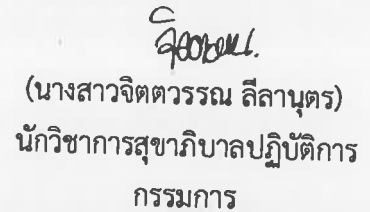 (นางสาวจิตตวรรณ ลีลานุตร)
นักวิชาการสุขาภิบาลปฏิบัติการ
กรรมการ